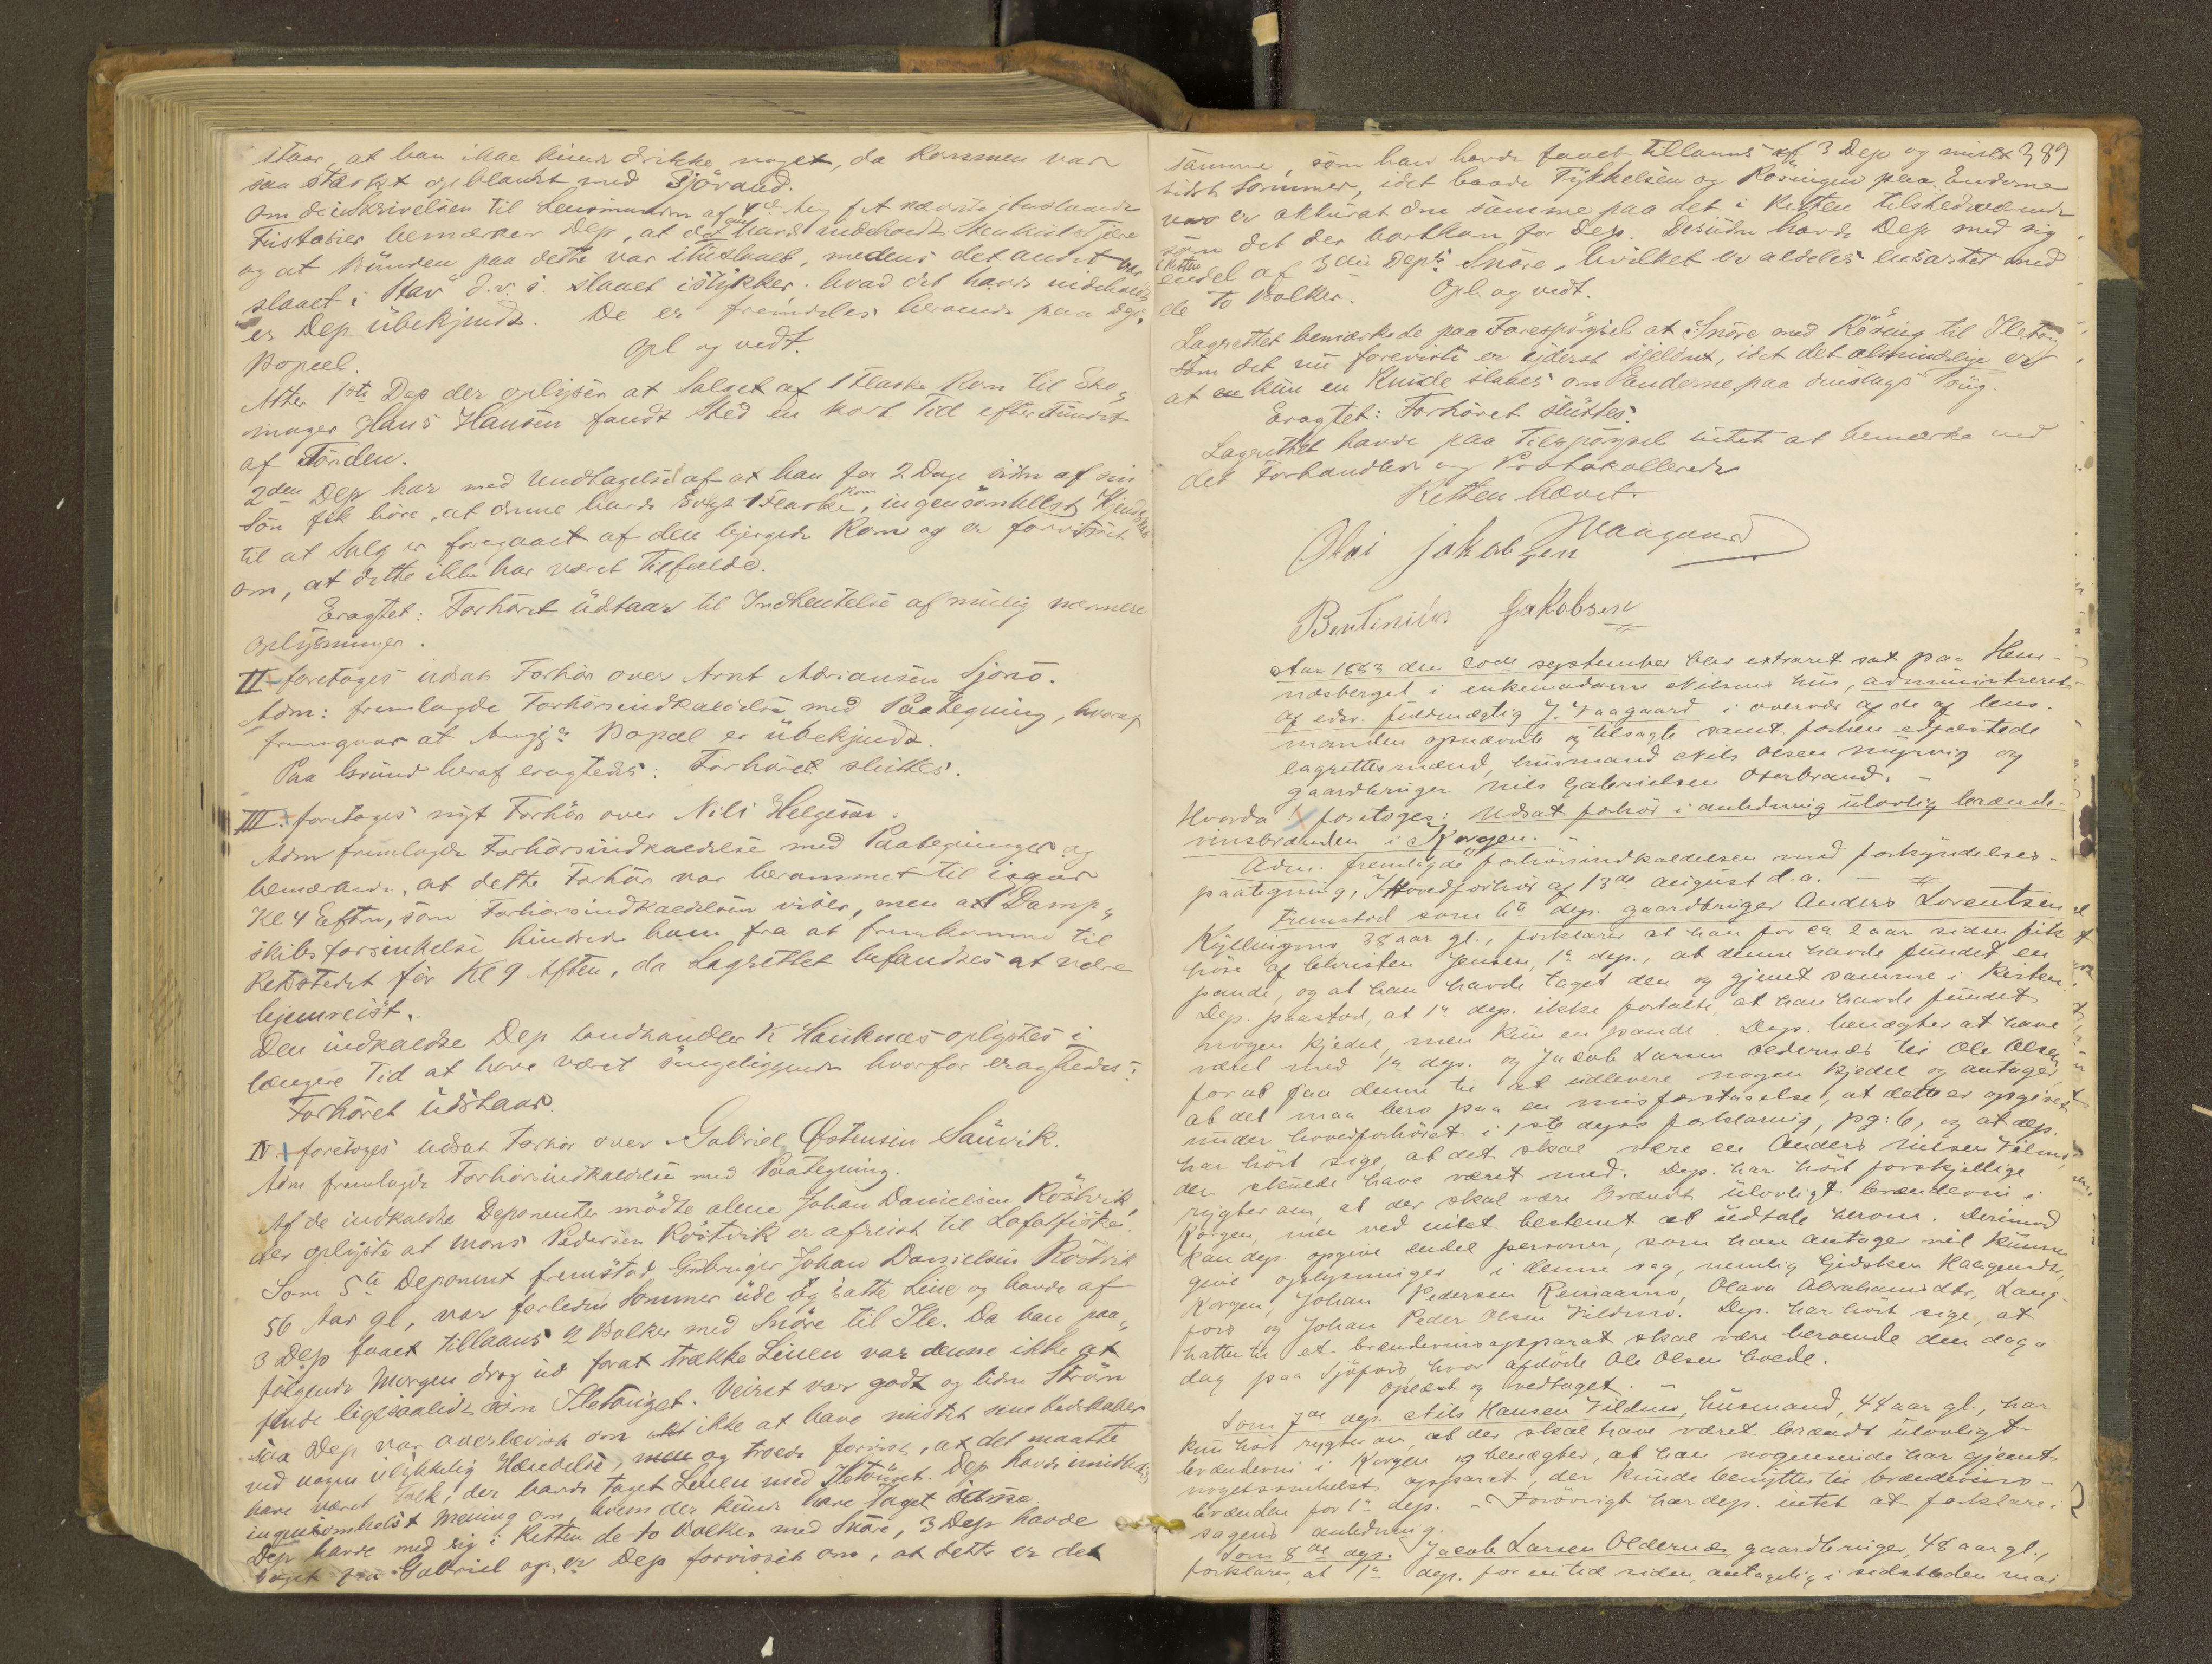 staar, at han ikke kunde drikke noget, da Rommen var
saa stærkt opblandet med Sjövand.
Om de i Skrivelsen til Lensmanden af 4de Aug f A nævnte ituslaaede
Fustasier bemærker Dep, at det ene havde indeholdt Stenkulstjære
og at Bunden paa dette var ituslaaet, medens det andet var
slaaet i "Stav" d.v.s. slaaet istykker. hvad det havde indeholdt
er Dep ubekjendt. De er fremdeles beroende paa Deps
Bopæl.
Opl og vedt.
Atter 1ste Dep der oplyser at Salget af 1 Flaske Rom til Sko-
mager Hans Hansen fandt Sted en kort Tid efter Fundet
af Tönden.
2den Dep har med Undtagelse af at han for 2 Dage siden af sin
Sön fik höre, at denne havde solgt 1 Flaske Rom, ingensomhelst Kjendskab
til at Salg er foregaaet af den bjergede Rom og er forvisset
om, at dette ikke har været Tilfælde.
Eragtet: Forhöret udstaar til Indhentelse af mulig nærmere
oplysninger.
II foretoges udsat Forhör over Arnt Adriansen Sjonö.
Adm: fremlagde Forhörsindkaldelse med Paategning, hvoraf
fremgaar at Angj. Bopæl er ubekjendt.
Paa Grund heraf eragtedes: Forhöret sluttes.
III. foretoges nyt Forhör over Nils Helgesen.
Adm fremlagde Forhörsindkaldelse med Paategninger og
bemærkede, at dette Forhör var berammet til igaar
Kl 4 Eftm, som Forhörsindkaldelsen viser, men at Damp-
skibsforsinkelse hindrede ham fra at fremkomme til
Retsstedet för Kl 9 Aften, da Lagrettet befandtes at være
hjemreist.
Den indkaldte Dep Landhandler K Hauknes oplystes i
længere Tid at have været sengeliggende hvorfor eragtedes:
Forhöret udstaar.
IV foretoges udsat Forhör over Gabriel Østensen Saurvik.
Adm fremlagde Forhörsindkaldelse med Paategning.
Af de indkaldte Deponenter mödte alene Johan Danielsen Röstvik,
der oplyste at Mons Pedersen Röstvik er afreist til Lofotfiske.
Som 5te Deponent fremstod Gbruger Johan Danielsen Röstvik
56 Aar gl, var forleden Sommer ude og satte Line og havde af
3 Dep faaet tillaans 2 Bolker med Snöre til Ile. Da han paa-
fölgende Morgen drog ud forat trække Linen var denne ikke at
finde ligesaalidt som Iletouget. Veiret var godt og liden Ström
saa Dep var overbevist om ikke at have mistet sine Redskaber
ved nogen ulykkelig Hændelse, og troede forvist, at det maatte
have været Folk, der havde taget Linen med Iletouget. Dep havde imidlertid
ingensomhelst Mening om, hvem der kunde have taget samme.
Dep havde med sig i Retten de to Bolker med Snöre, 3 Dep havde
taget fra Gabriel og er Dep forvisset om, at dette er det
389
samme, som han havde faaet tillaans af 3 Dep og mistet
sidst Sommer, idet baade Tykkelsen og Röringen paa Enderne
er akkurat den samme paa det i Retten tilstedeværende
som det der bortkom for Dep. Desuden havde Dep med sig
i Retten
endel af 3die Deps Snöre, hvilket er aldeles ensartet med
de to Bolker. Opl. og vedt.
Lagrettet bemærkede paa Forespörgsel at Snöre med Röring til Iletoug
som det nu foreviste er yderst sjeldent, idet det almindelige er
at kun en Knude slaaes om Enderne paa deslags Toug
Eragtet: Forhöret sluttes.
Lagrettet havde paa Tilspörgsel intet at bemærke ved
det Forhandlede og Protokollerede
Retten hævet.
Vaagaard
Olai Jakobsen
Bentinius Jakobsen
Aar 1883 den 20de september blev extraret sat paa Hem-
næsberget i enkemadame Nilsens hus, administreret
af edsv. fuldmægtig J. Vaagaard i overvær af de af lens-
manden opnævnte og tilsagte samt forhen edfæstede
lagrettesmænd, husmand Nils Olsen Myrvig og
gaardbruger Nils Gabrielsen Oterbrand.
Hvorda foretoges: Udsat forhör i anledning ulovlig brænde-
vinsbrænden i Korgen.
Adm. fremlagde forhörsindkaldelsen med forkyndelses-
paategning, Hovedforhör af 13de august d. a.
Fremstod som 6te dep. gaardbruger Anders Lorentsen
Kyllingmo, 38 aar gl., forklarer at han for ca 2 aar siden fik
höre af Christen Jensen, 1ste dep., at denne havde fundet en
pande, og at han havde taget den og gjemt samme i kisten.
Dep. paastod, at 1ste dep. ikke fortalte, at han havde fundet
nogen kjedel, men kun en pande. Dep. benægter at have
været med 1ste dep. og Jacob Larsen Oldernæs til Ole Olsen
for at faa denne til at udlevere nogen kjedel og antager
at det maa bero paa en misforstaaelse, at dette er opgivet
under hovedforhöret i 1ste deps forklaring, pg: 6, og at dep.
har hört sige, at det skal være en Anders Nilsen Vilmo,
der skulde have været med. Dep. har hört forskjellige
rygter om, at der skal være brændt ulovligt brændevin i
Korgen, men ved intet bestemt at udtale herom. Derimod
kan dep. opgive endel personer, som han antager vil kunne
give oplysninger i denne sag, nemlig Gidsken Haagensdtr,
Korgen, Johan Pedersen Reinaamo, Olava Abrahamsdtr, Lang-
fors og Johan Peder Olsen Vildmo. Dep. har hört sige, at
hatten til et brændevinsapparat skal være beroende den dag i
dag paa Sjöfors hvor afdöde Ole Olsen boede.
oplæst og vedtaget.
Som 7de dep. Nils Hansen Vildmo, husmand, 44 aar gl., har
kun hört rygter om at der skal have været brændt ulovligt
brændevin i Korgen og benægter, at han nogensinde har gjemt
nogetsomhelst apparat, der kunde benyttes til brændevins-
brænden for 1ste dep. - Forövrigt har dep. intet at forklare i
sagens anledning.
Som 8de dep. Jacob Larsen Oldernæs, gaardbruger, 48 aar gl.,
forklarer, at 1ste dep. for en tid siden, antagelig i sidstleden mai